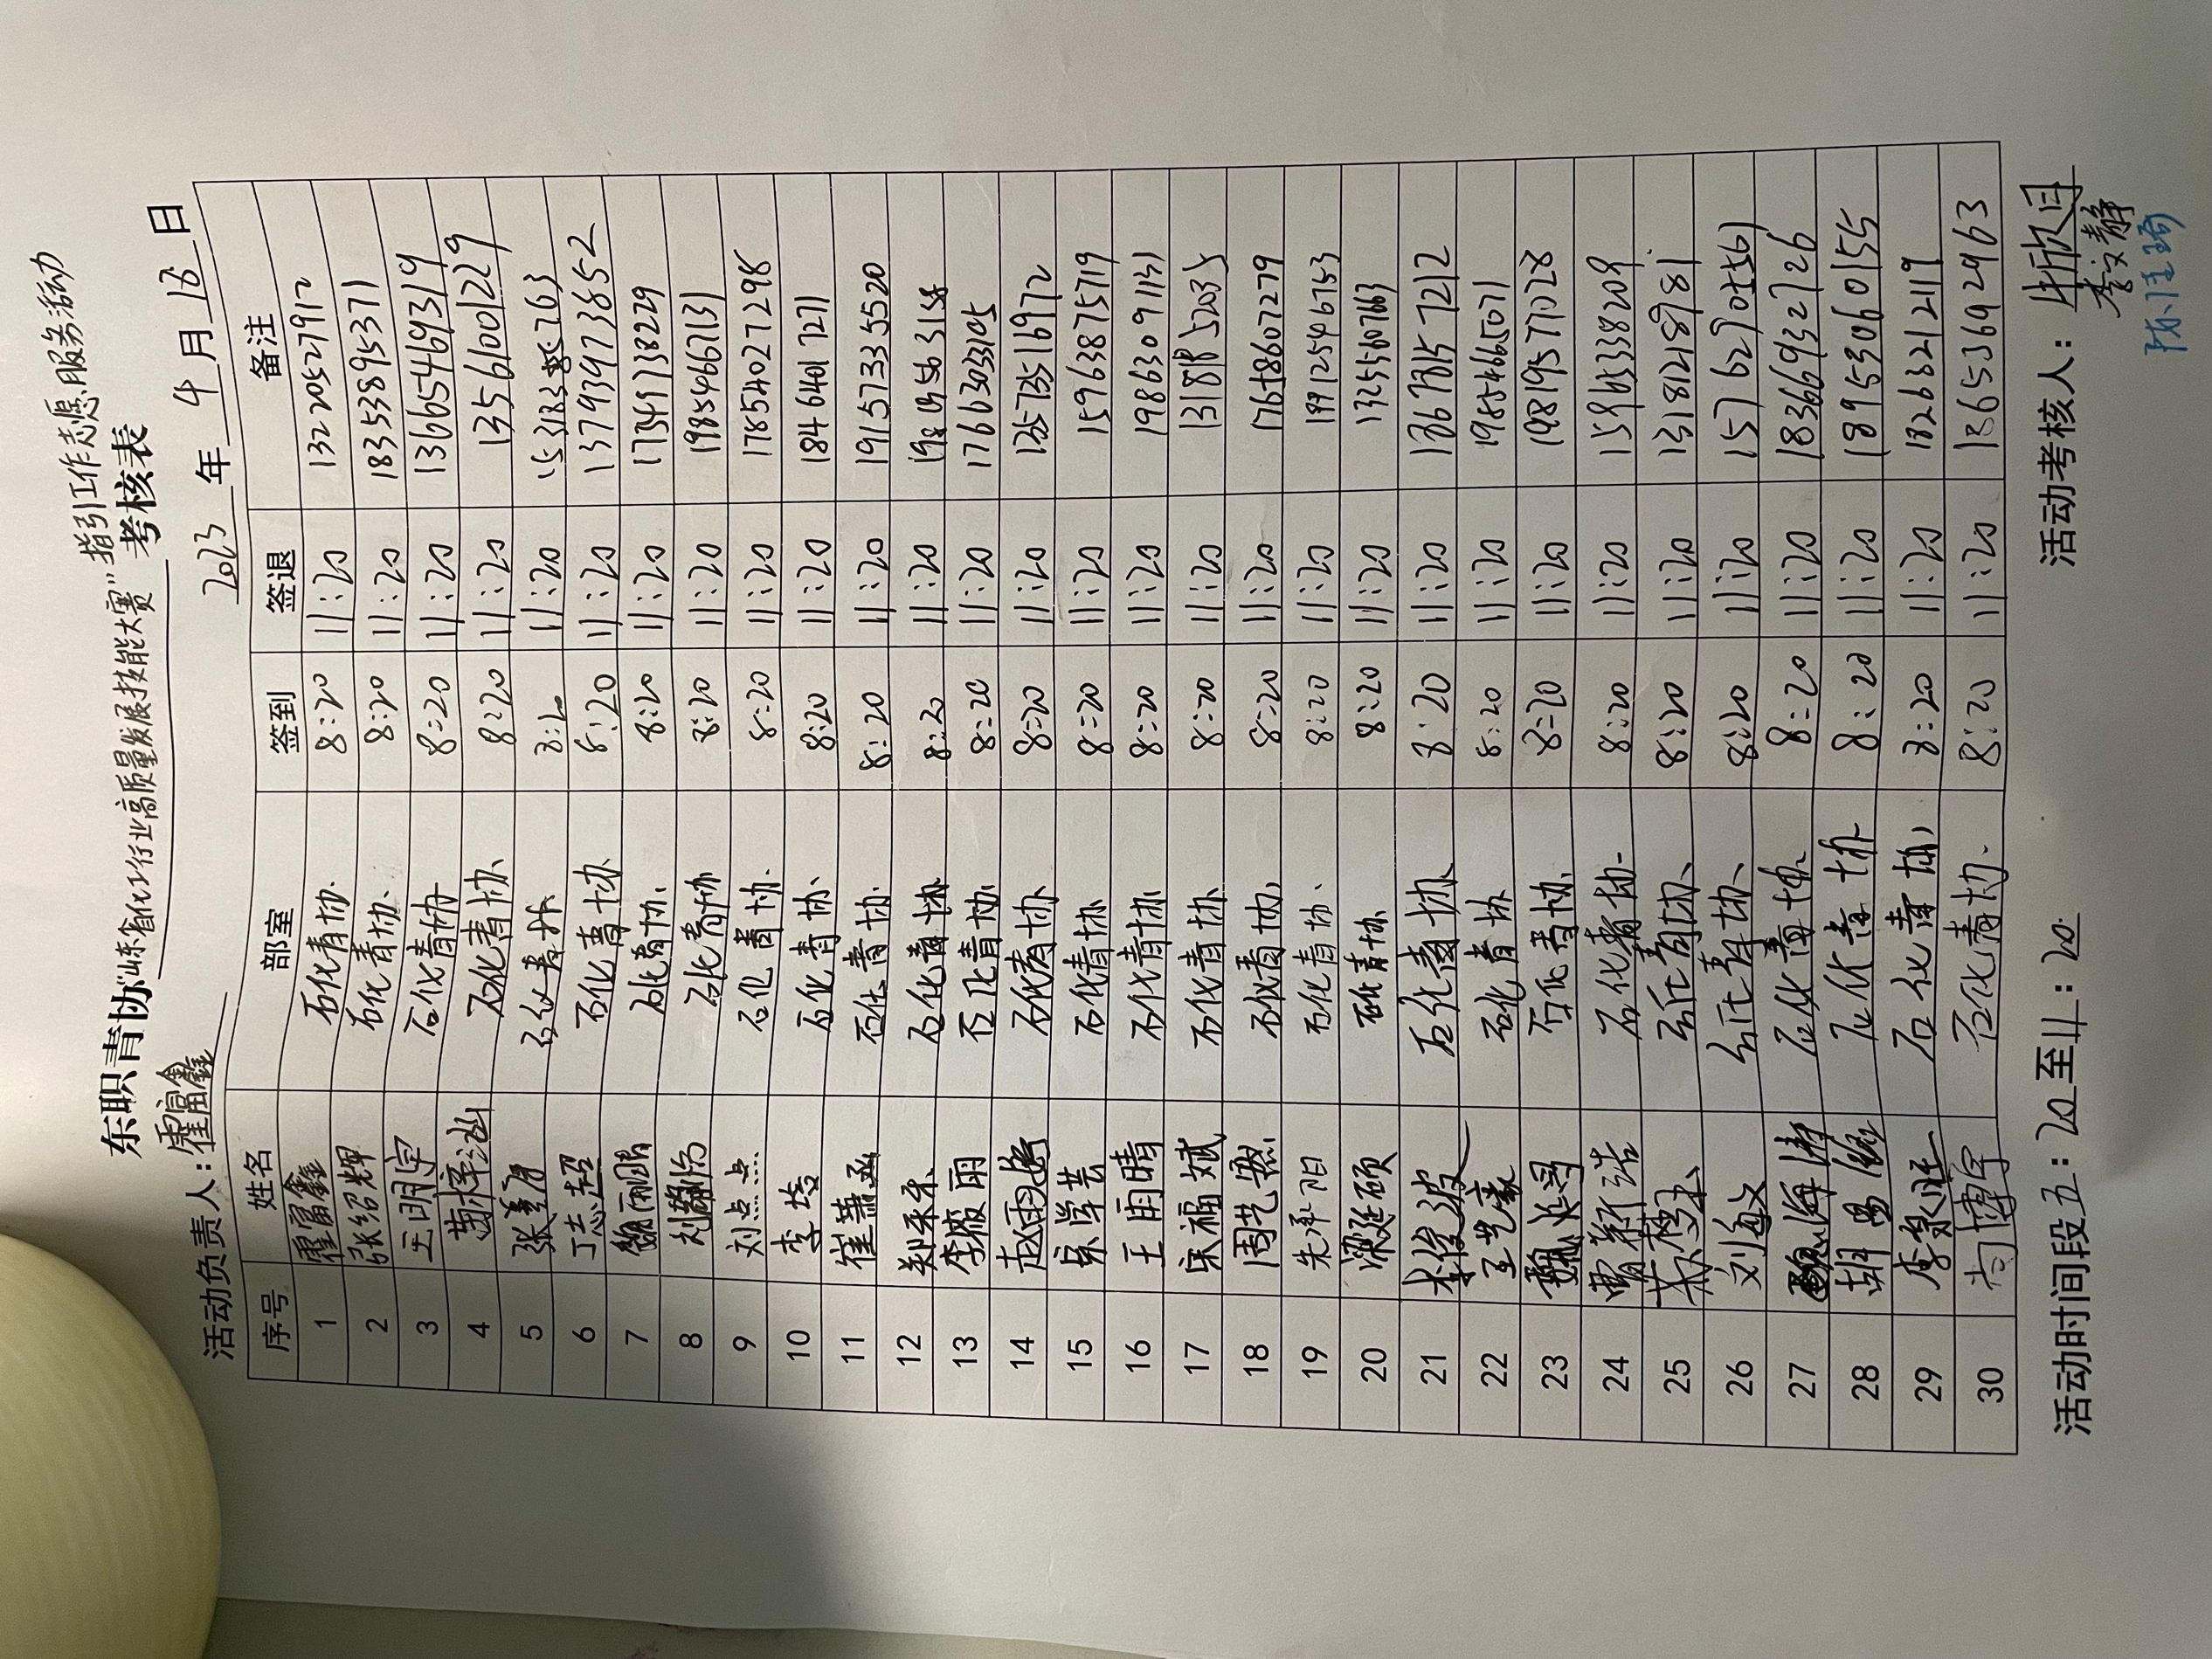 东职青协"山东省化工行业高质量发展技能大赛"指引工作志愿服务活动 考核表
活动负责人：霍富鑫 2023 年 4 月 18 日
序号 姓名 部室 签到 签退 备注
1 霍富鑫 石化青协 8:20 11:20 13220527912
2 张绍辉 石化青协 8:20 11:20 18353895371
3 王明宇 石化青协 8:20 11:20 13665469319
4 石化青协 8:20 11:20 13561001229
5 石化青协 8:20 11:20
6 丁志超 石化青协 8:20 11:20 13793973852
7 魏雨鹏 石化青协 8:20 11:20 17549738229
8 石化青协 8:20 11:20 19854667131
9 刘点点 石化青协 8:20 11:20 17854027298
10 李培 石化青协 8:20 11:20 18464017271
11 崔萧函 石化青协 8:20 11:20 19157335520
12 郑禾禾 石化青协 8:20 11:20
13 李薇雨 石化青协 8:20 11:20 17663033105
14 石化青协 8:20 11:20
15 吴学芸 石化青协 8:20 11:20 15963875719
16 王雨晴 石化青协 8:20 11:20 19863091131
17 宋福斌 石化青协 8:20 11:20
18 石化青协 8:20 11:20 17658607279
19 朱承阳 石化青协 8:20 11:20 19912546753
20 梁延硕 石化青协 8:20 11:20 13255607663
21 李俊波 石化青协 8:20 11:20
22 王艺豪 石化青协 8:20 11:20 19854665071
23 石化青协 8:20 11:20 19819577028
24 曹新浩 石化青协 8:20 11:20
25 石化青协 8:20 11:20 13181218981
26 刘敏 石化青协 8:20 11:20
27 魏海涛 石化青协 8:20 11:20 18366932726
28 石化青协 8:20 11:20 18953060155
29 李泉旺 石化青协 8:20 11:20 18263212119
30 石化青协 8:20 11:20 13653692963
活动时间段五：20至11：20 活动考核人：
李文静